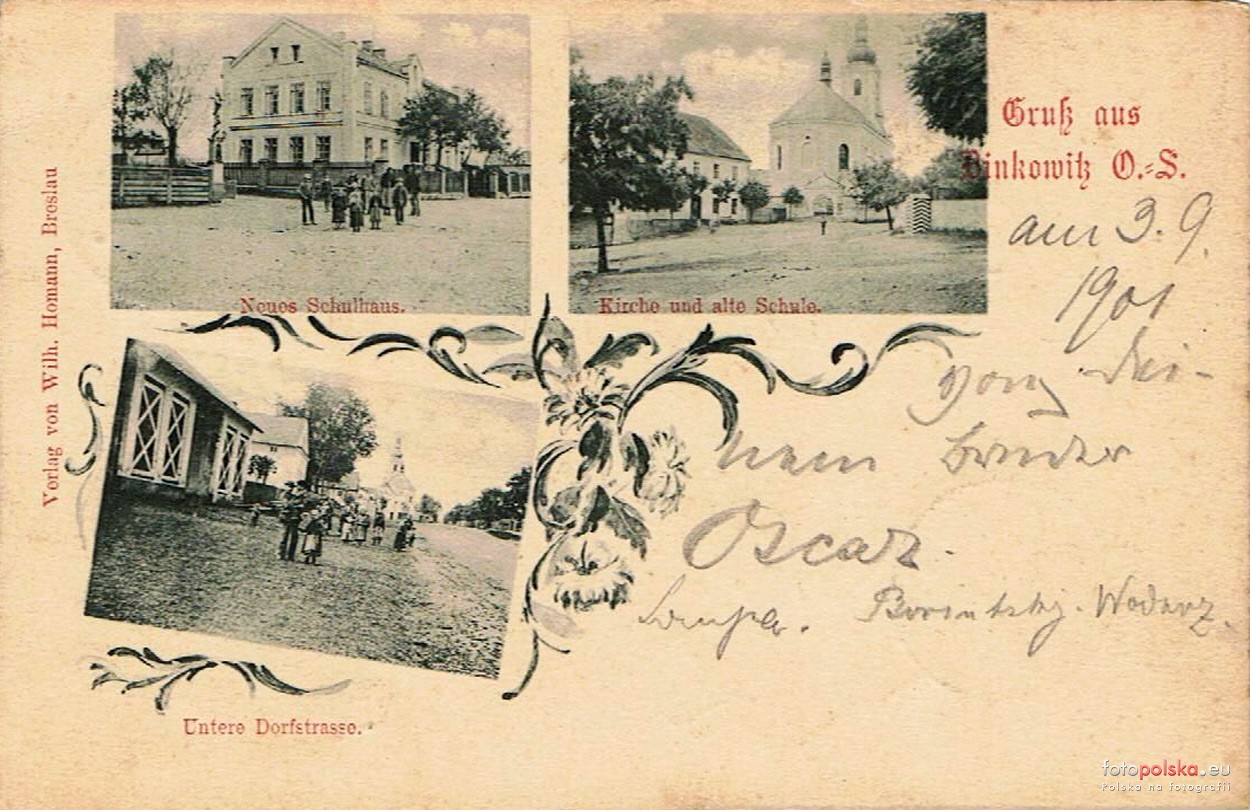 Verlag von Wilh. Homann, Breslau
Neues Schulhaus.
Kirche und alte Schule.
Gruß aus
Binkowitz O.-S.
am 3. 9.
1901
von dei-
nem Bruder
Oscar.
Untere Dorfstrasse.
fotopolska.eu
Polska na fotografii